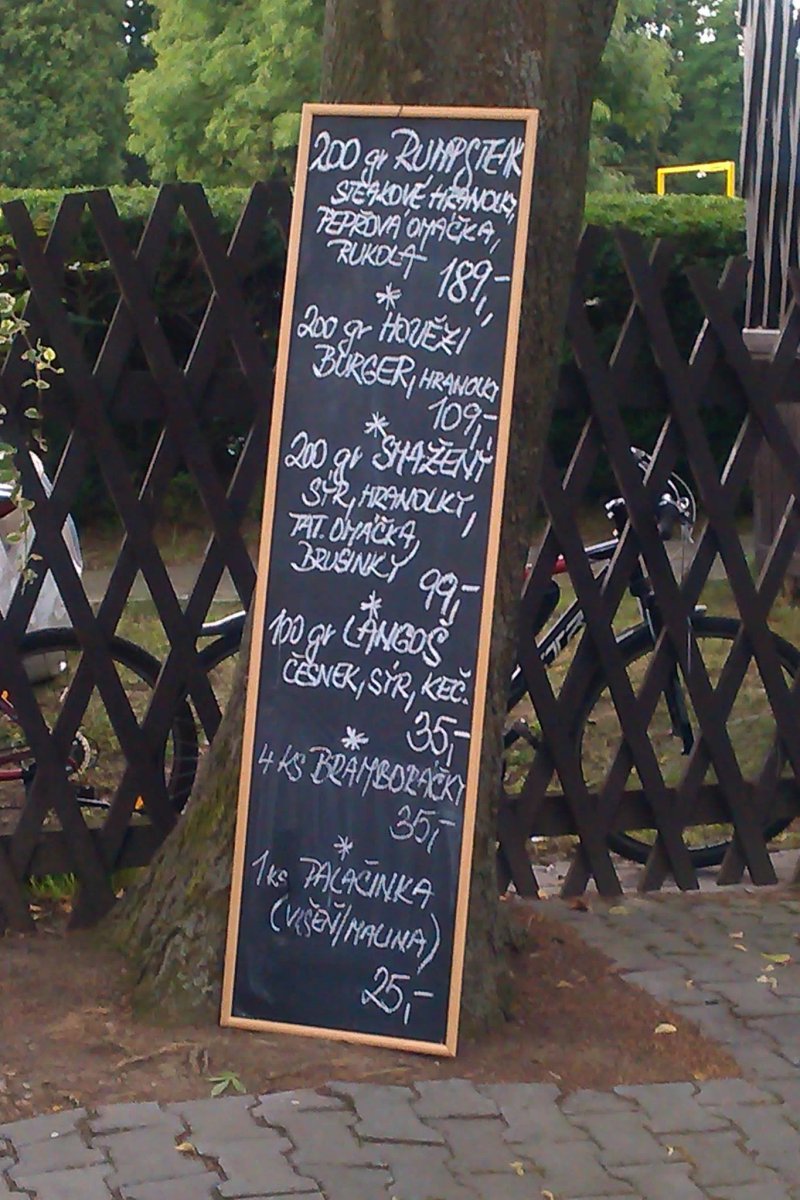 200 gr RUMPSTEAK
STEAKOVÉ HRANOLKY,
PEPŘOVÁ OMÁČKA,
RUKOLA
189,-
*
200 gr HOVĚZÍ
BURGER, HRANOLKY
109,-
*
200 gr SMAŽENÝ
SÝR, HRANOLKY,
TAT. OMÁČKA,
BRUSINKY
99,-
*
100 gr LANGOŠ
ČESNEK, SÝR, KEČ.
35,-
*
4 KS BRAMBORÁČKY
35,-
*
1 KS PALAČINKA
(VIŠEŇ/MALINA)
25,-